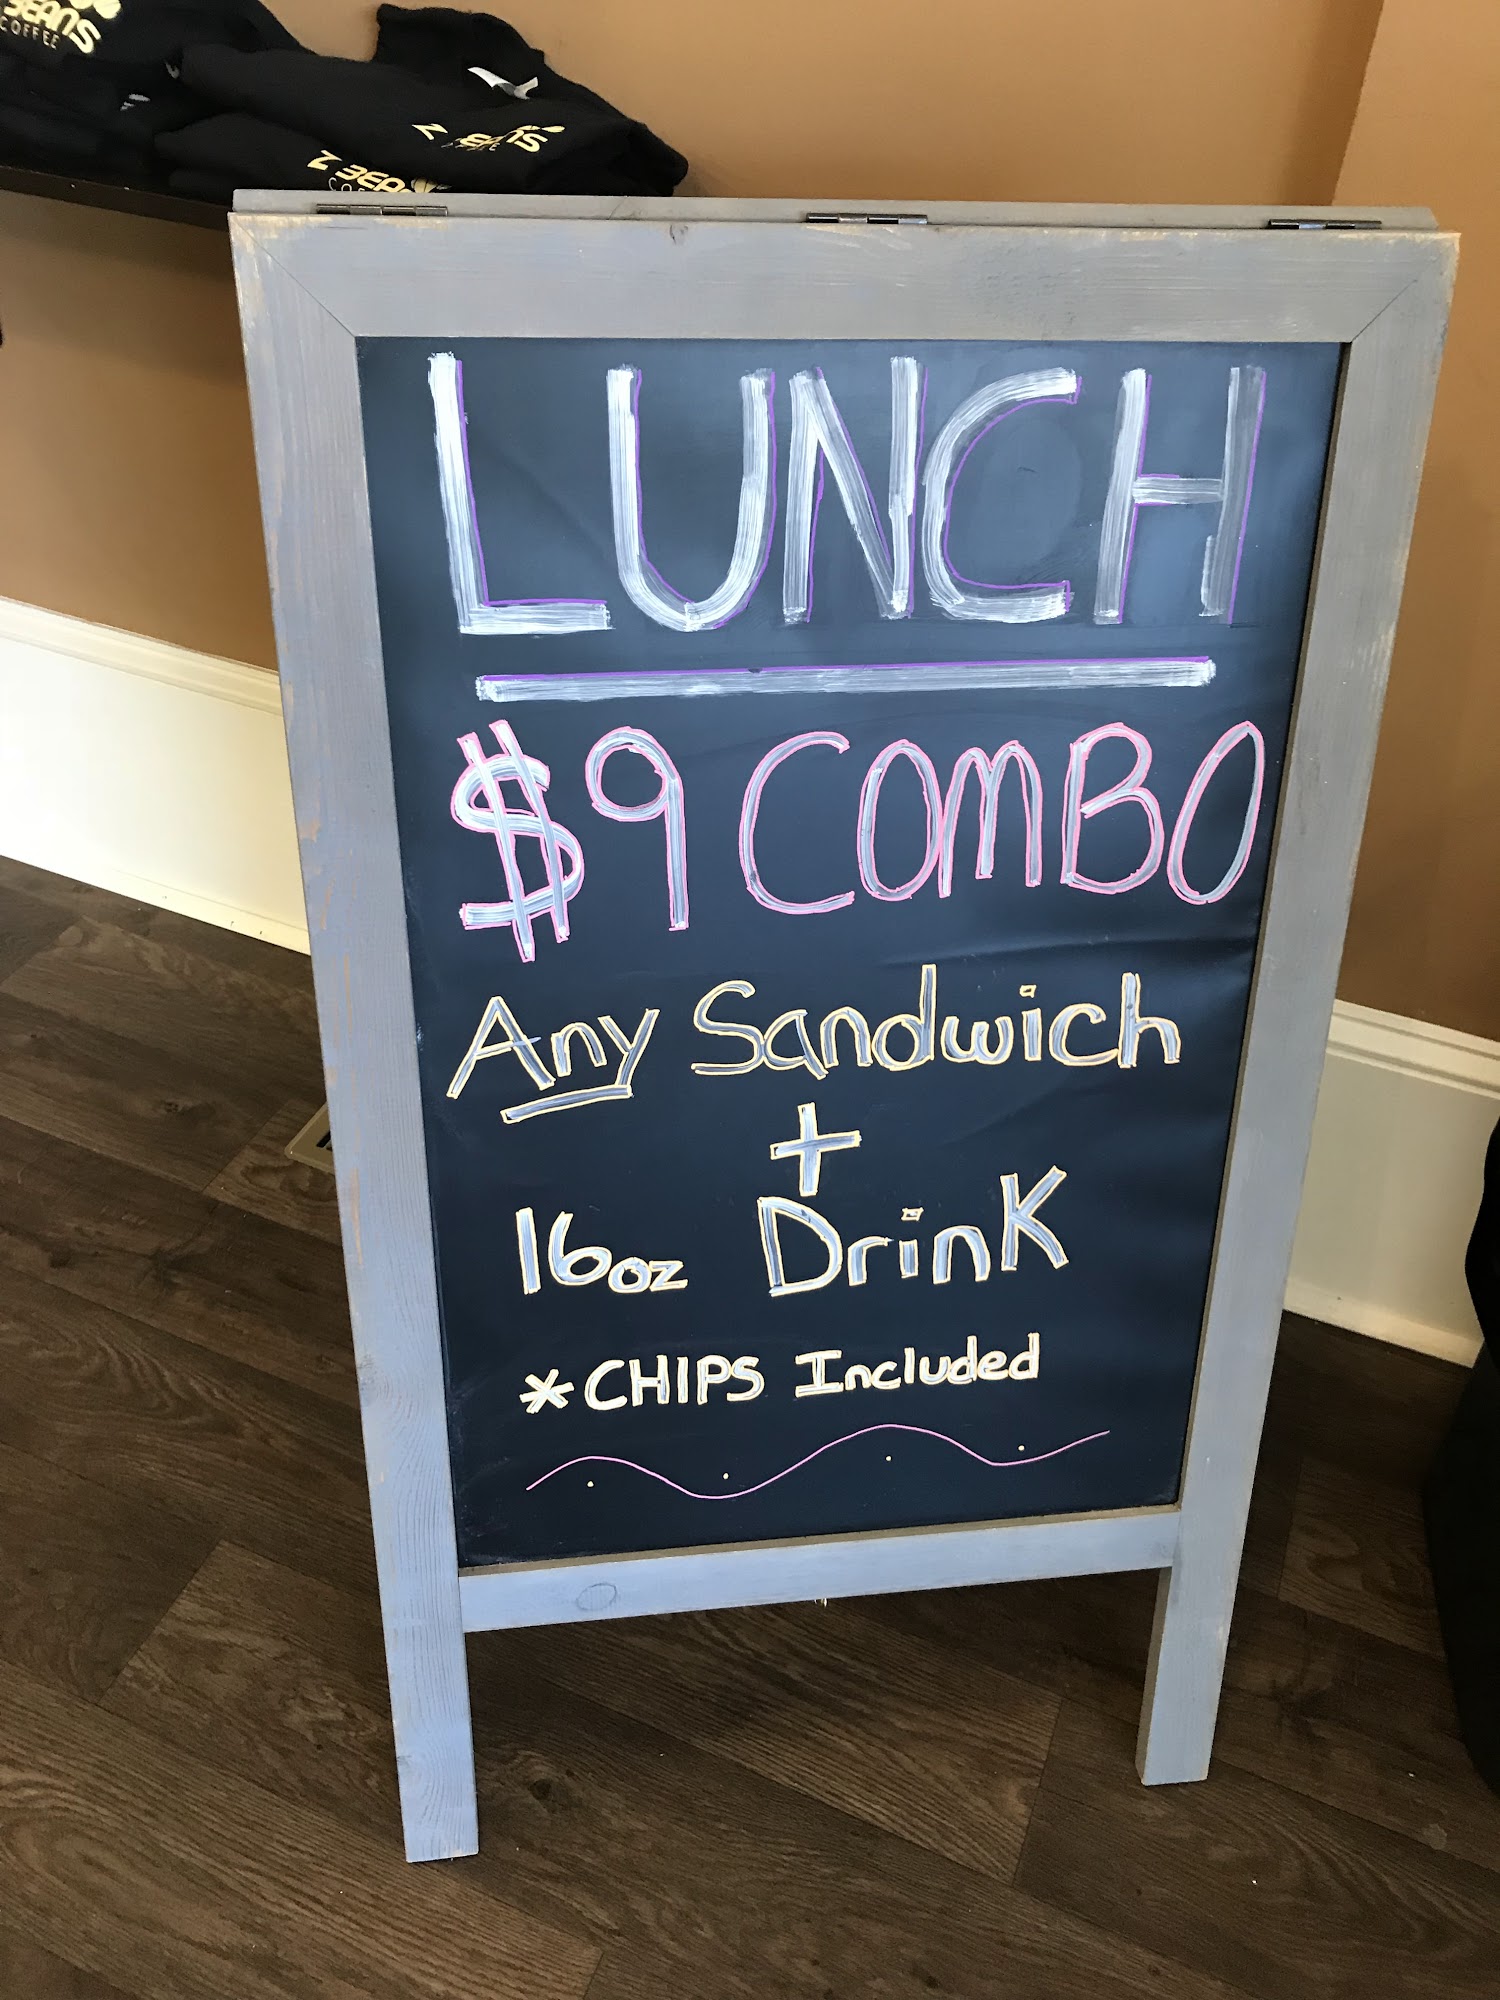 BEANS
COFFEE
Z BEANS
Z BEANS
LUNCH
$9 COMBO
Any Sandwich
+
16oz Drink
*CHIPS Included